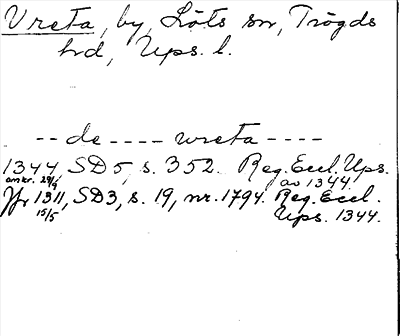 Vreta, by, Löts sn, Trögds
hd, Ups. l.
-- de ---- wreta ----
1344, SD5, s. 352. Reg. Eccl. Ups.
omkr. 29/9 av 1344.
Jfr 1311, SD3, s. 19, nr. 1794. Reg. Eccl.
15/5 Ups. 1344.